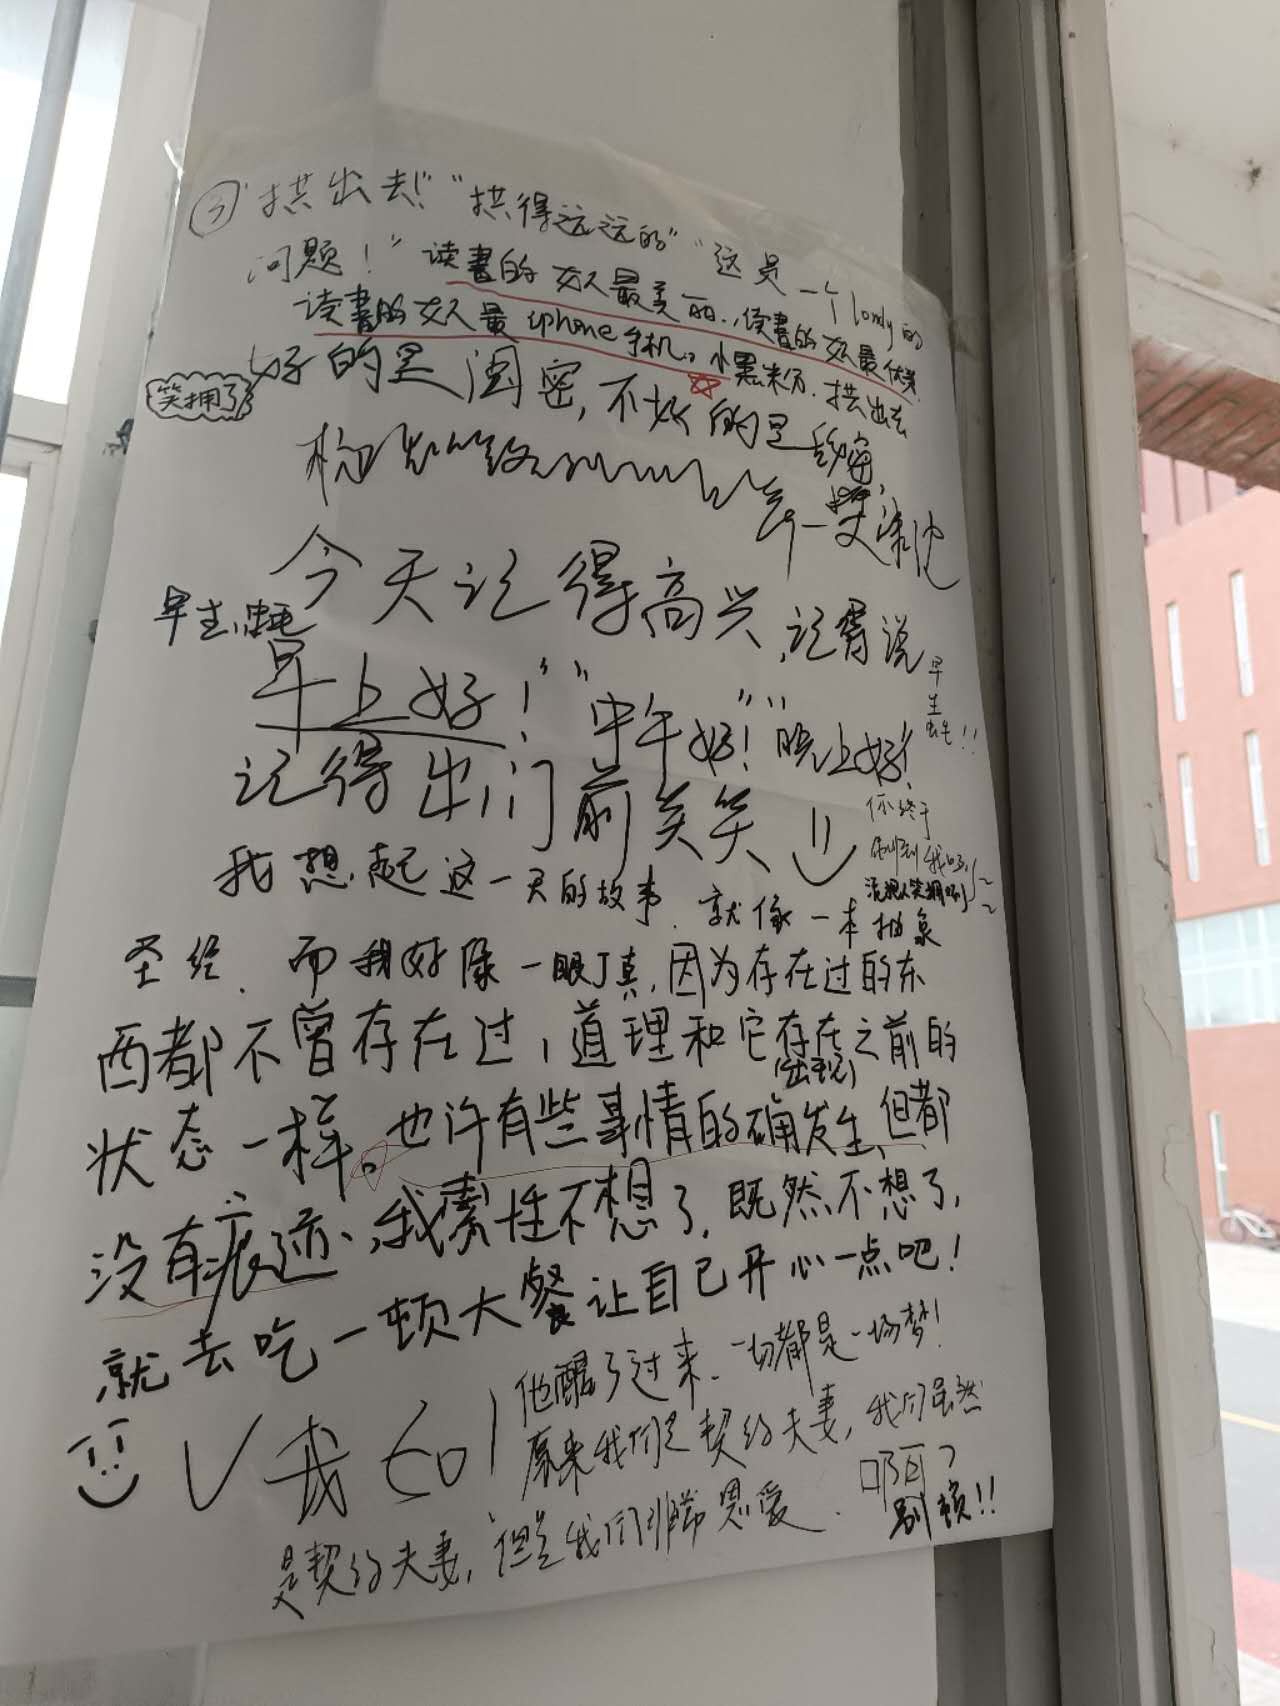 ③"拱出去!""拱得远远的""这是一个lonly的
问题!"读书的女人最美丽.,读书的女人最优美
读书的女人最iphone手机。小黑米分.拱出去
好的是闺密,不好的是
笑拥了
今天记得高兴,记得说
早生蚝
早上好!""中午好!""晚上好!
早生蚝!!
记得出门前笑笑
你终于
刷到我
我想起这一天的故事.就像一本抽象
圣经.而我好像一眼丁真,因为存在过的东
西都不曾存在过,道理和它存在之前的
(出现)
状态一样。也许有些事情的确发生,但都
没有痕迹.,我索性不想了,既然不想了,
就去吃一顿大餐让自己开心一点吧!
他醒了过来.一切都是一场梦!
原来我们是契约夫妻,我们虽然
是契约夫妻,但是我们非常恩爱.
别装!!